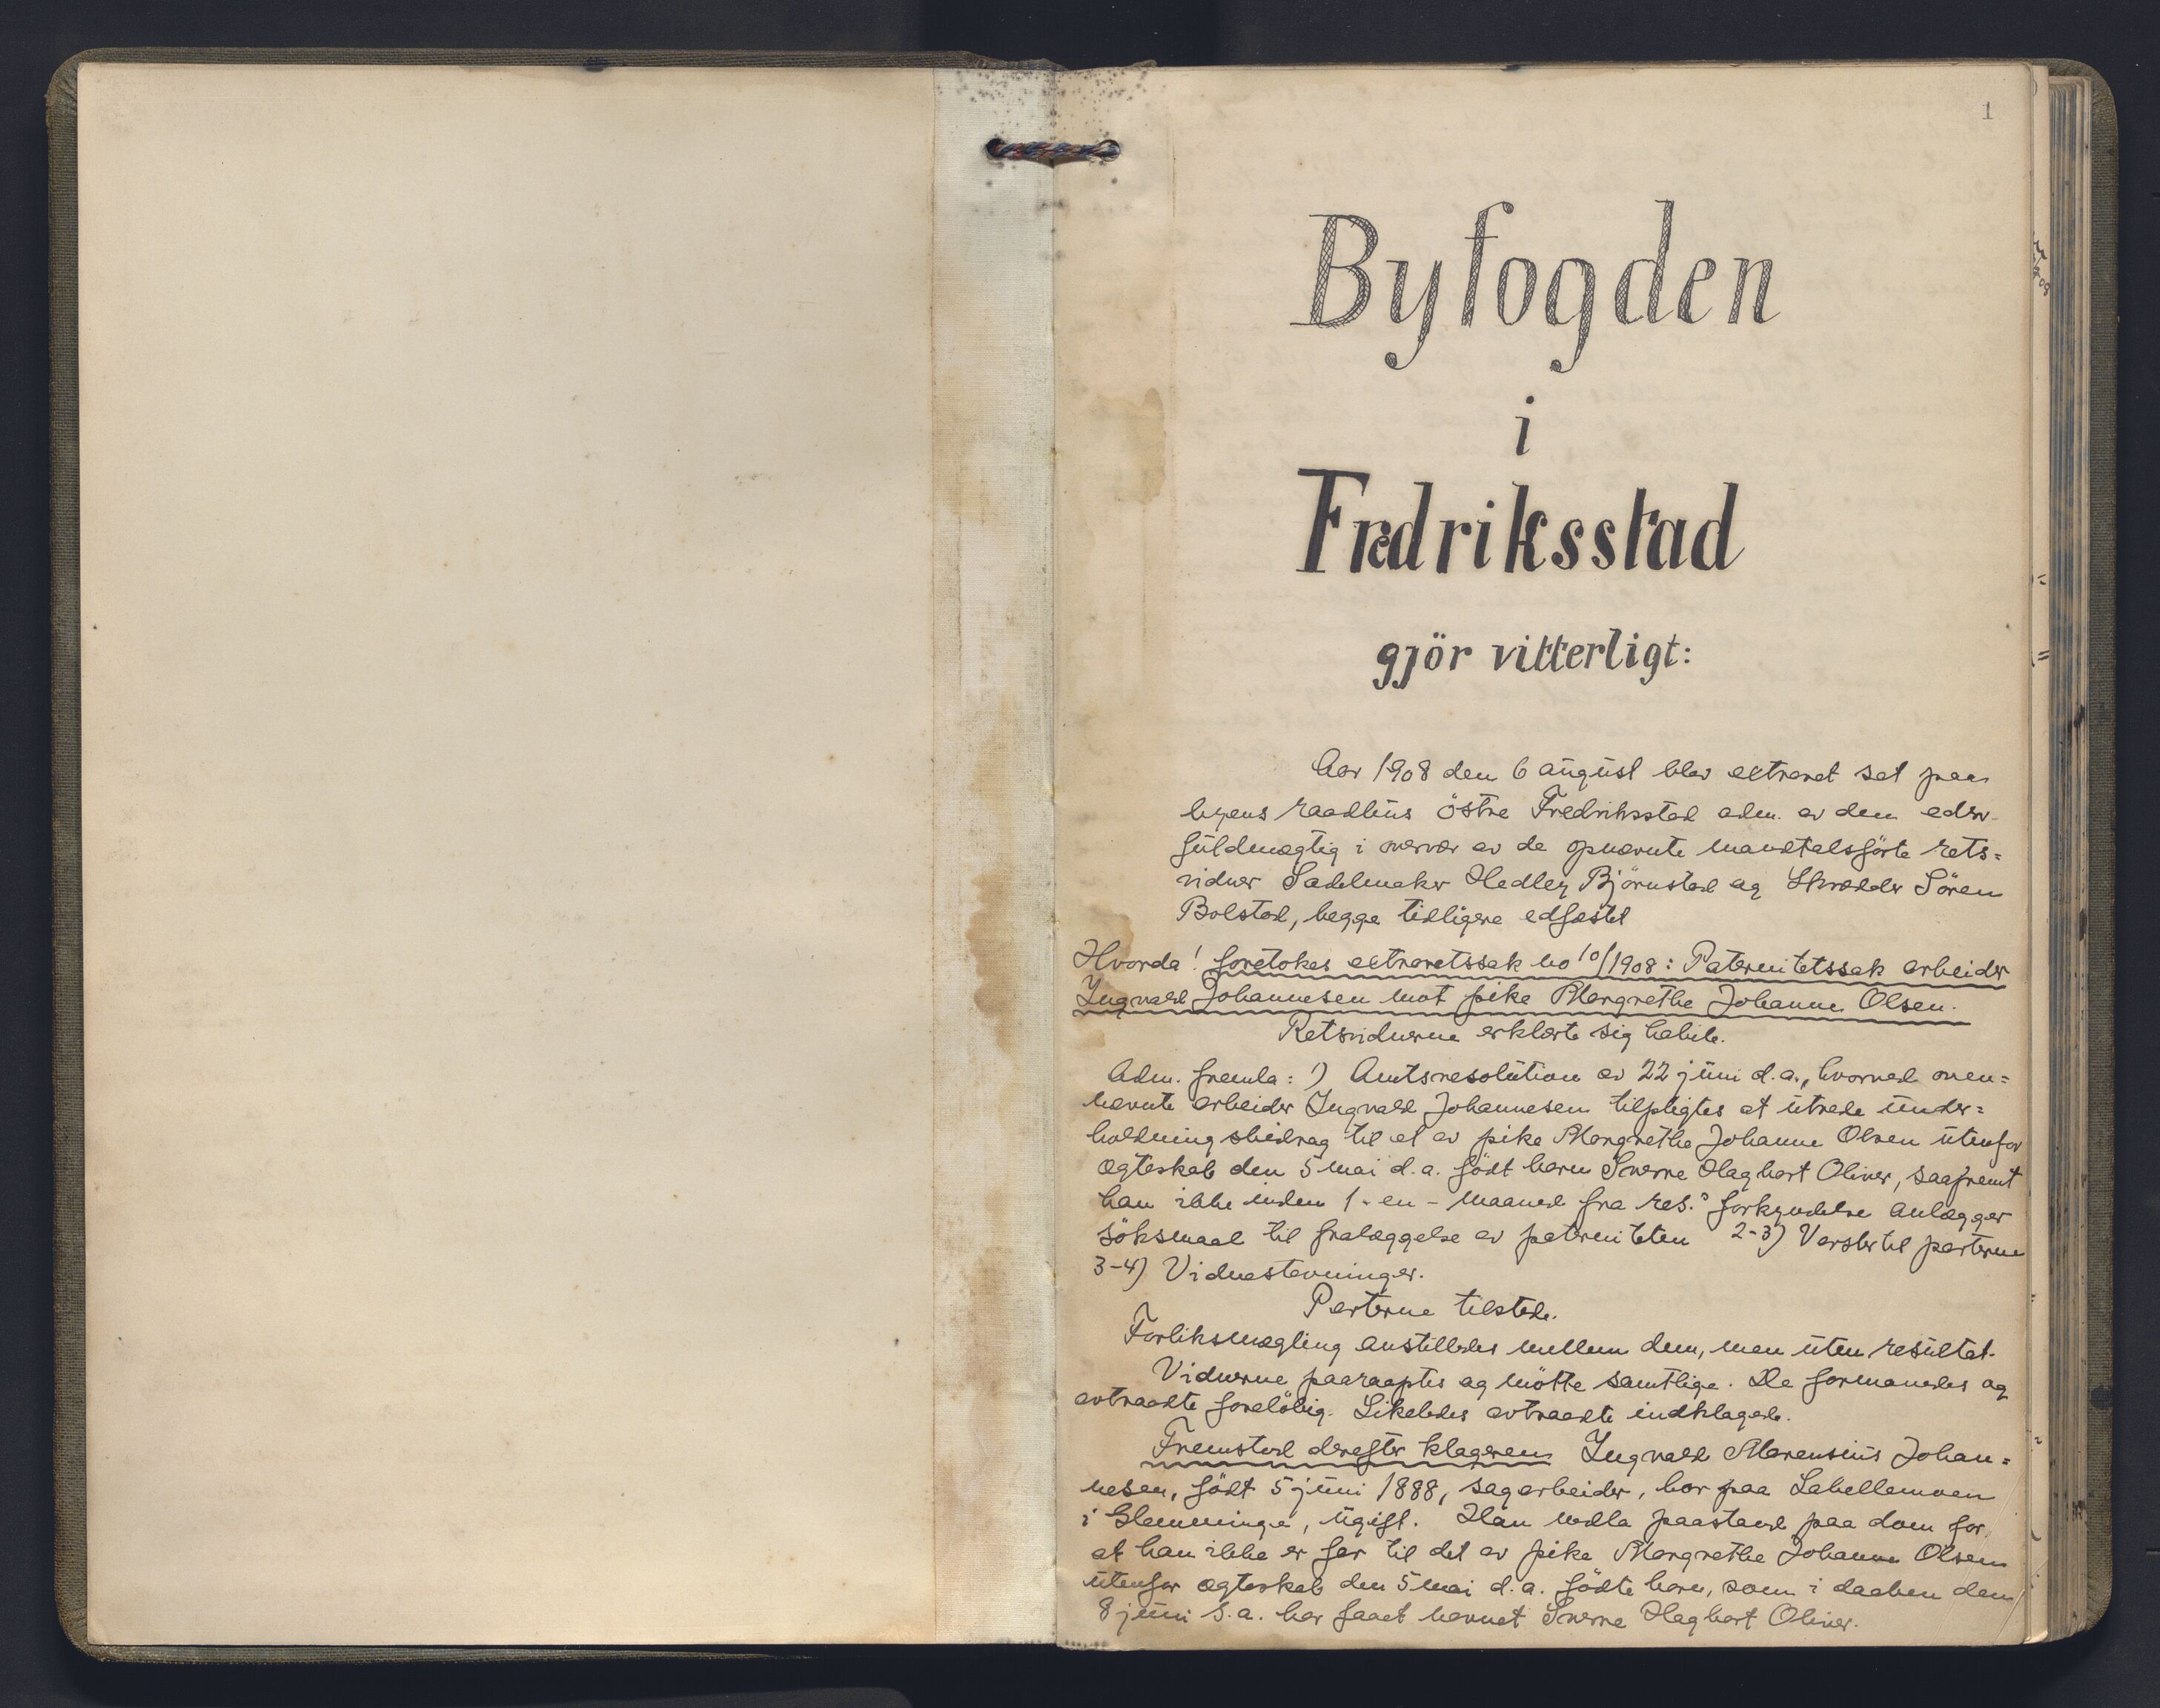 1
Byfogden
i
Fredriksstad
gjör vitterligt:
Aar 1908 den 6 august blev extraret sat paa
byens raadhus östre Fredriksstad adm. av den edsv.
fuldmægtig i overvær av de opnævnte mandtalsförte rets=
vidner Sadelmaker Hedley Björnstad og Skrædder Sören
Bolstad, begge tidligere edfæstet
Hvorda! foretokes extraretssak no 10/1908: Paternitetssak arbeider
Ingvald Johannesen mot pike Margrethe Johanne Olsen.
Retsvidnerne erklærte sig habile.
Adm. fremla: 1) Amtsresolution av 22 juni d.a., hvorved oven=
nævnte arbeider Ingvald Johannesen tilpligtes at utrede under=
holdningsbidrag til et av pike Margrethe Johanne Olsen utenfor
ægteskab den 5 mai d.a. födt barn Sverre Hagbart Oliver, saafremt
han ikke inden 1 - en - maaned fra res.s forkyndelse anlægger
söksmaal til fralæggelse av paterniteten 2-3) Varsler til parterne
3-4) Vidnestevninger.
Parterne tilstede.
Forliksmægling anstilledes mellem dem, men uten resultat.
Vidnerne paaraaptes og mötte samtlige. De formanedes og
avtraadte forelöbig. Likeledes avtraadte indklagede.
Fremstod derefter klageren Ingvald Marensius Johan=
nesen, födt 5 juni 1888, sagarbeider, bor paa Labellemoen
i Glemminge, ugift. Han nedla paastand paa dom for
at han ikke er far til det av pike Margrethe Johanne Olsen
utenfor ægteskab den 5 mai d.a. födte barn, som i daaben den
8 juni s.a. har faaet navnet Sverre Hagbart Oliver.